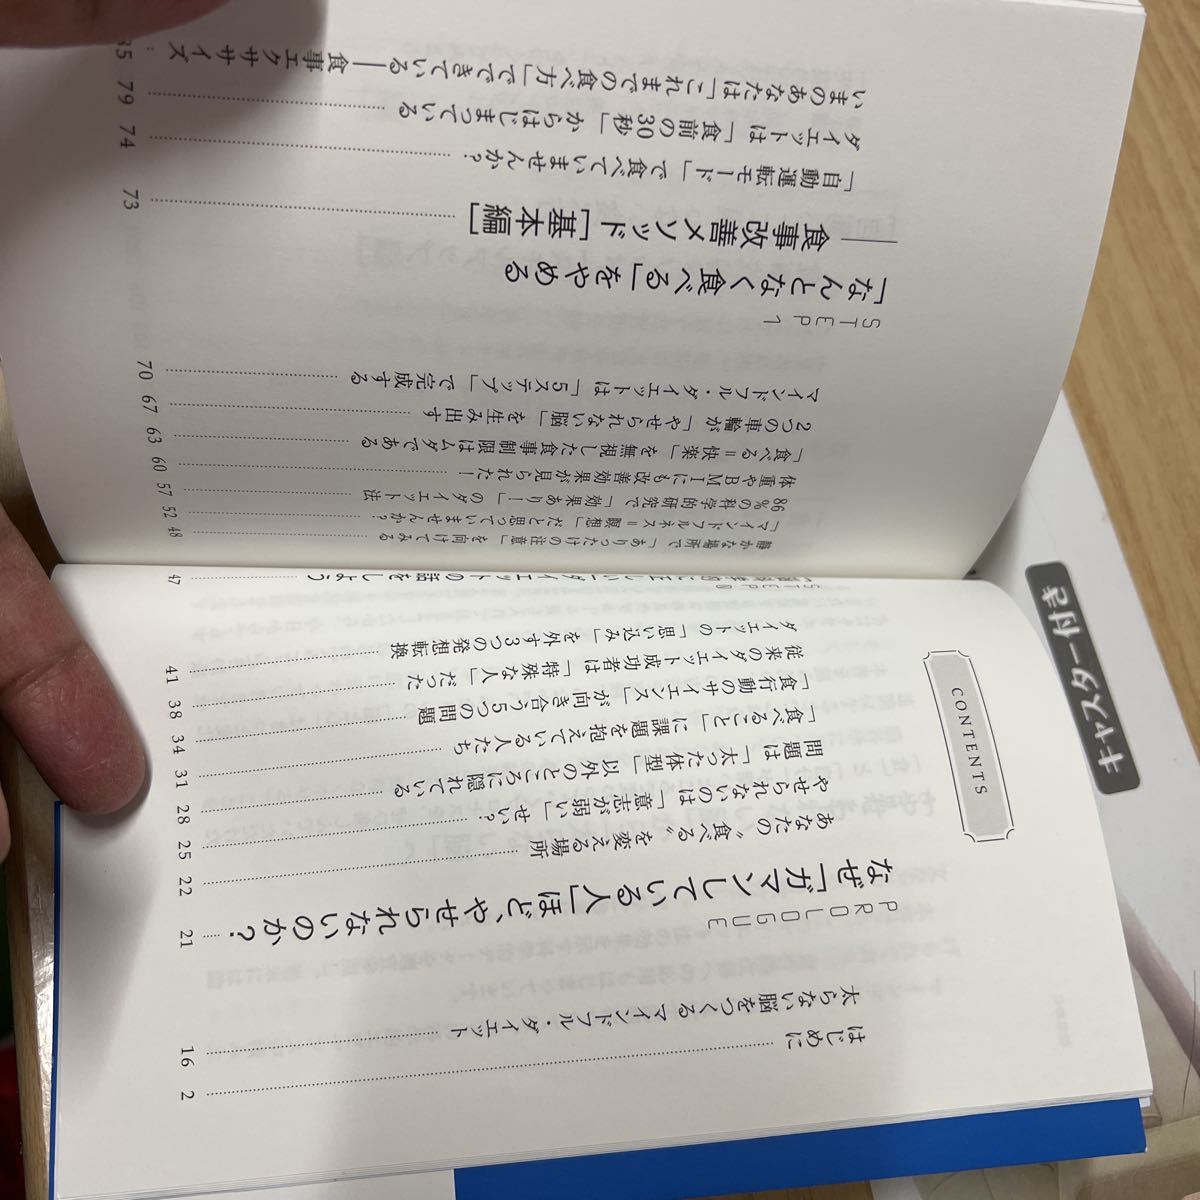 CONTENTS
はじめに 2
太らない脳をつくるマインドフル・ダイエット 16
PROLOGUE
なぜ「ガマンしている人」ほど、やせられないのか? 21
あなたの“食べる”を変える場所 22
やせられないのは「意志が弱い」せい? 25
問題は「太った体型」以外のところに隠れている 28
「食べること」に課題を抱えている人たち 31
「食行動のサイエンス」が向き合う5つの問題 34
従来のダイエット成功者は「特殊な人」だった 38
ダイエットの「思い込み」を外す3つの発想転換 41
STEP 0
正しいダイエットの話をしよう 47
静かな場所で「ありったけの注意」を向けてみる 48
「マインドフルネス=瞑想」だと思っていませんか? 52
86%の科学的研究で「効果あり!」のダイエット法 57
体重やBMIにも改善効果が見られた! 60
「食べる=快楽」を無視した食事制限はムダである 63
2つの車輪が「やせられない脳」を生み出す 67
マインドフル・ダイエットは「5ステップ」で完成する 70
STEP 1
「なんとなく食べる」をやめる
──食事改善メソッド[基本編] 73
「自動運転モード」で食べていませんか? 74
ダイエットは「食前の30秒」からはじまっている 79
いまのあなたは「これまでの食べ方」でできている──食事エクササイズ 85
キャスター付き